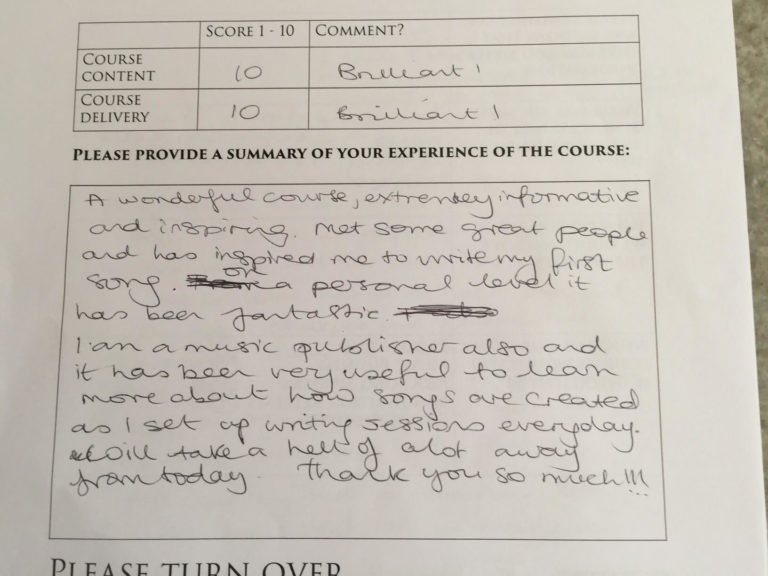 SCORE 1 - 10 COMMENT?
COURSE CONTENT 10 Brilliant!
COURSE DELIVERY 10 Brilliant!
PLEASE PROVIDE A SUMMARY OF YOUR EXPERIENCE OF THE COURSE:
A wonderful course, extremley informative
and inspiring. Met some great people
and has inspired me to write my first
song. on a personal level it
has been fantastic.
I am a music publisher also and
it has been very useful to learn
more about how songs are created
as I set up writing sessions everyday.
Will take a hell of alot away
from today. Thank you so much!!!
PLEASE TURN OVER